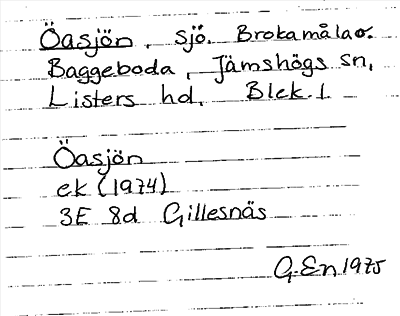 Öasjön, sjö. Brokamåla o.
Baggeboda, Jämshögs sn,
Listers hd, Blek. l.
Öasjön
ek (1974)
3E 8d Gillesnäs
G.En 1975